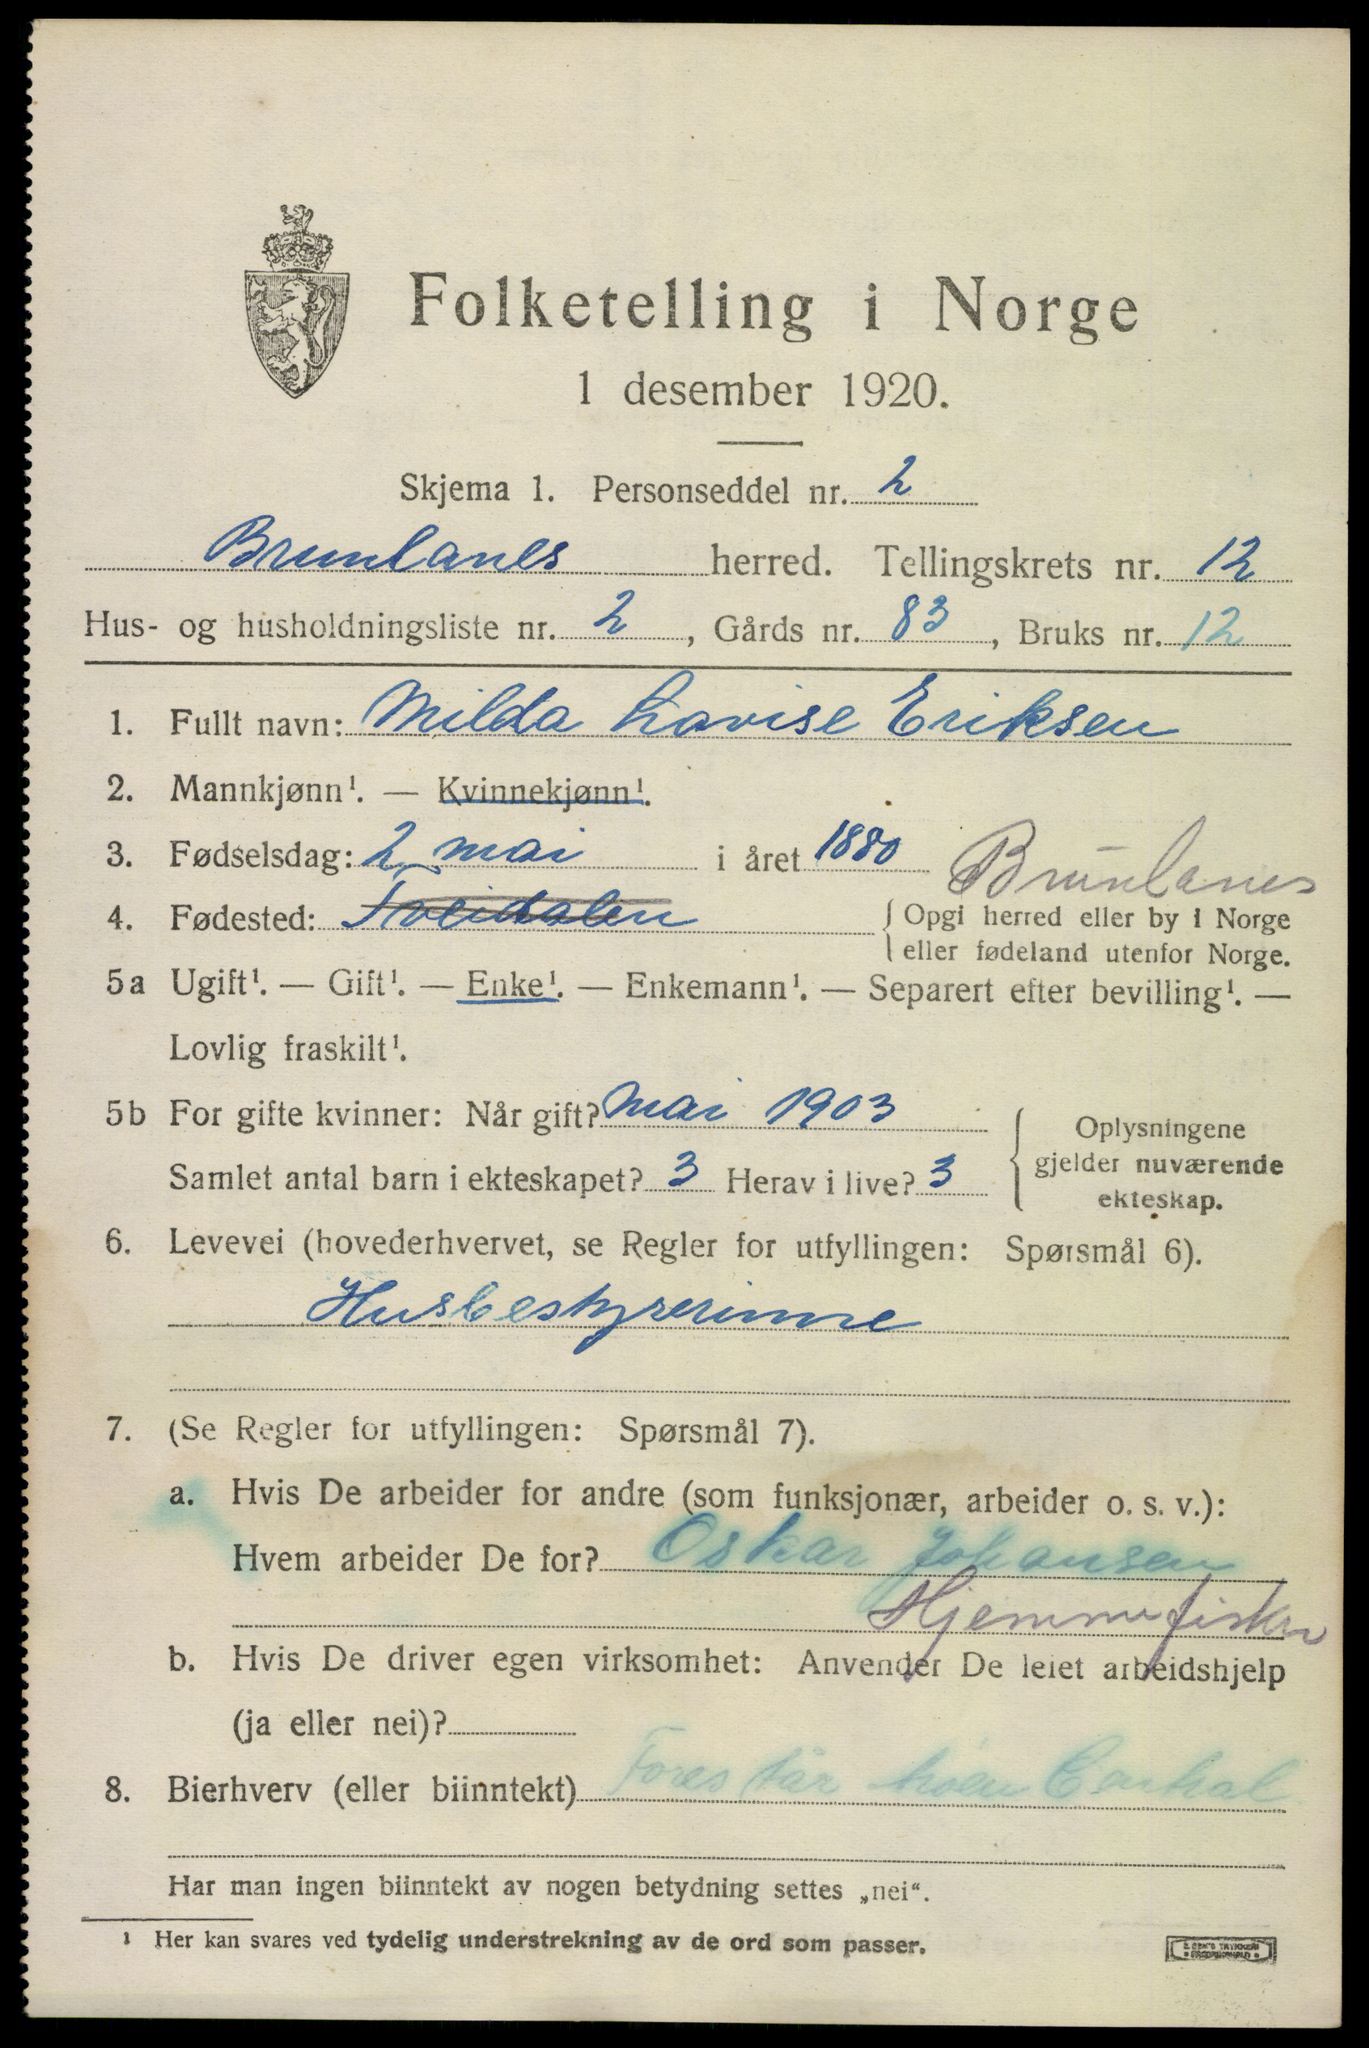 Folketelling i Norge
1 desember 1920.
Skjema 1. Personseddel nr. 2
Brunlanes herred. Tellingskrets nr. 12
Hus- og husholdningsliste nr. 2, Gårds nr. 83, Bruks nr. 12
1. Fullt navn: Milda Lovise Eriksen
2. Mannkjønn¹. — Kvinnekjønn¹.
3. Fødselsdag: 2 mai i året 1880
Brunlanes
4. Fødested: Tveidalen { Opgi herred eller by i Norge
eller fødeland utenfor Norge.
5a Ugift¹. — Gift¹. — Enke¹. — Enkemann¹. — Separert efter bevilling¹. —
Lovlig fraskilt¹.
5b For gifte kvinner: Når gift? mai 1903
Samlet antal barn i ekteskapet? 3 Herav i live? 3
{ Oplysningene
gjelder nuværende
ekteskap.
6. Levevei (hovederhvervet, se Regler for utfyllingen: Spørsmål 6).
Husbestyrerinne
7. (Se Regler for utfyllingen: Spørsmål 7).
a. Hvis De arbeider for andre (som funksjonær, arbeider o. s. v.):
Hvem arbeider De for? Oskar Johansen
Hjemmefisker
b. Hvis De driver egen virksomhet: Anvender De leiet arbeidshjelp
(ja eller nei)?
8. Bierhverv (eller biinntekt) Forestår Central
Har man ingen biinntekt av nogen betydning settes „nei“.
¹ Her kan svares ved tydelig understrekning av de ord som passer.